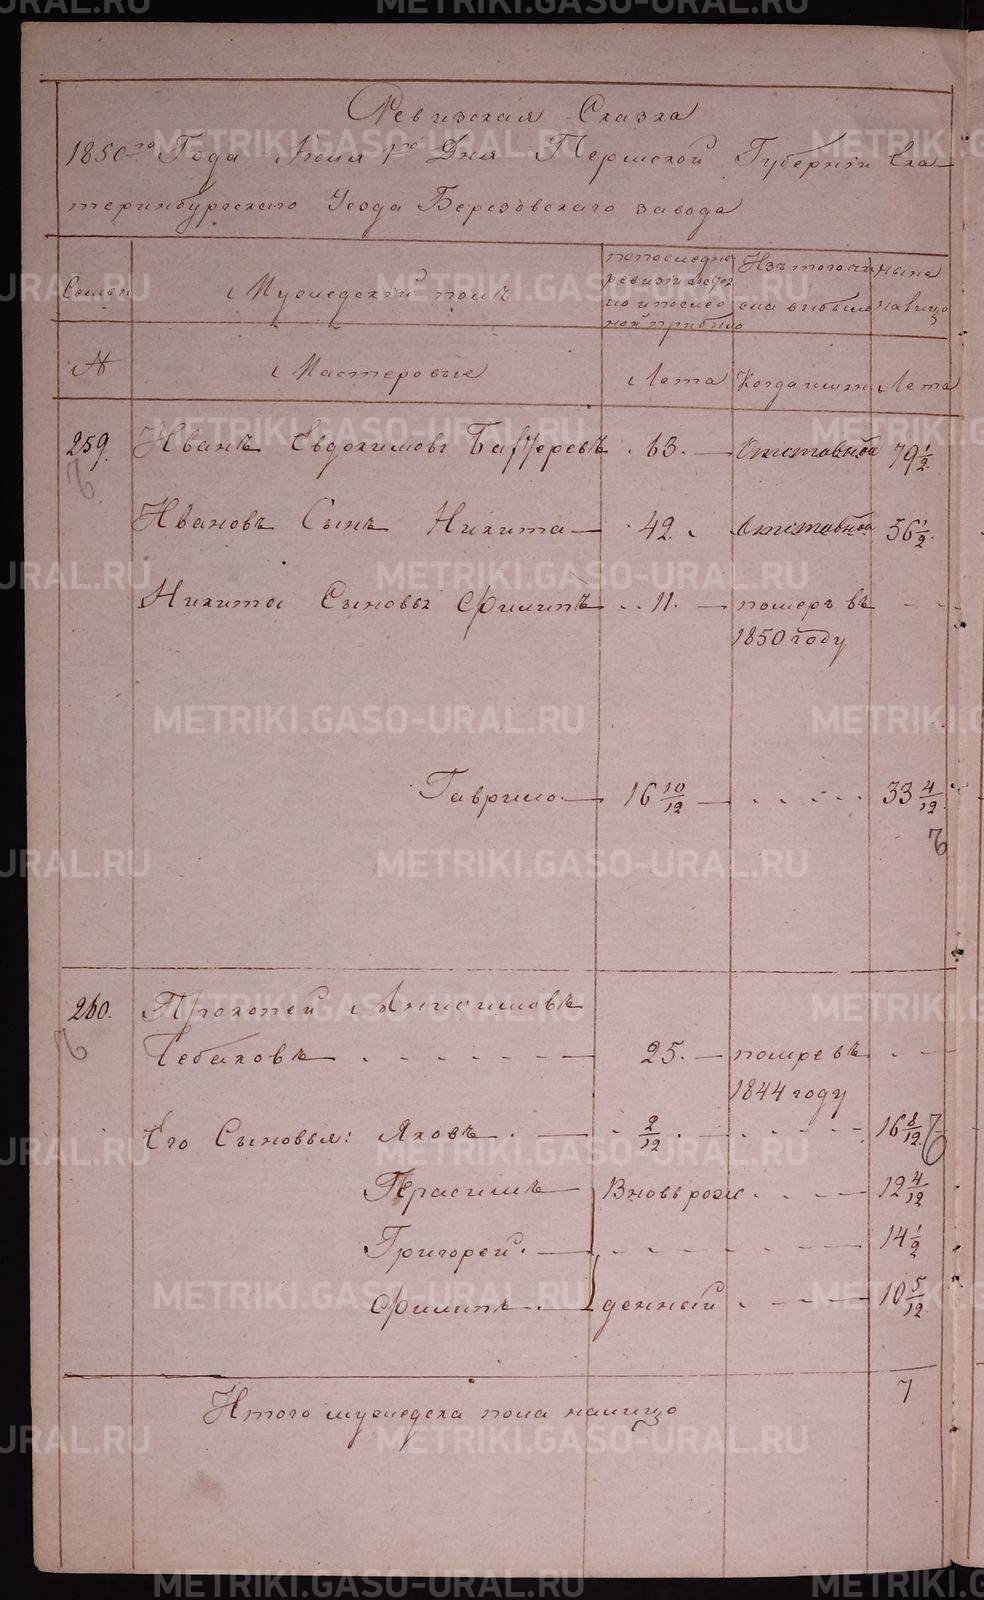 Ревизская Сказка
1850го Года Июля 1го Дня Пермской Губернiи Ека-
теринбургскаго Уезда Березовскаго завода
Семьи
Мужедскiй полъ
попоследне
ревизiи состоя
ло и после
ной прибыло
Изъ того чи
сла выбыло
Ныне
на лицо
№
Мастеровые
Лета
Когда имян
Лета
259. Иванъ Евдокимовъ 63. — Отставной 79 1/2
Ивановъ Сынъ Никита — 42. Отставной 56 1/2
Никиты Сыновья Филипъ 11. — померъ въ
1850 году
Гаврило — 16 10/12 — 33 4/12
260. Прокопей Анисимовъ
Чебаковъ — 25. — помре въ
1844 году
Его Сыновья: Яковъ — 2/12 16 8/12
Герасимъ — Вновь рож 12 4/12
Григорей. — 14 1/2
Филипъ — денный 10 5/12
Итого мужедска пола налицо 7
METRIKI.GASO-URAL.RU